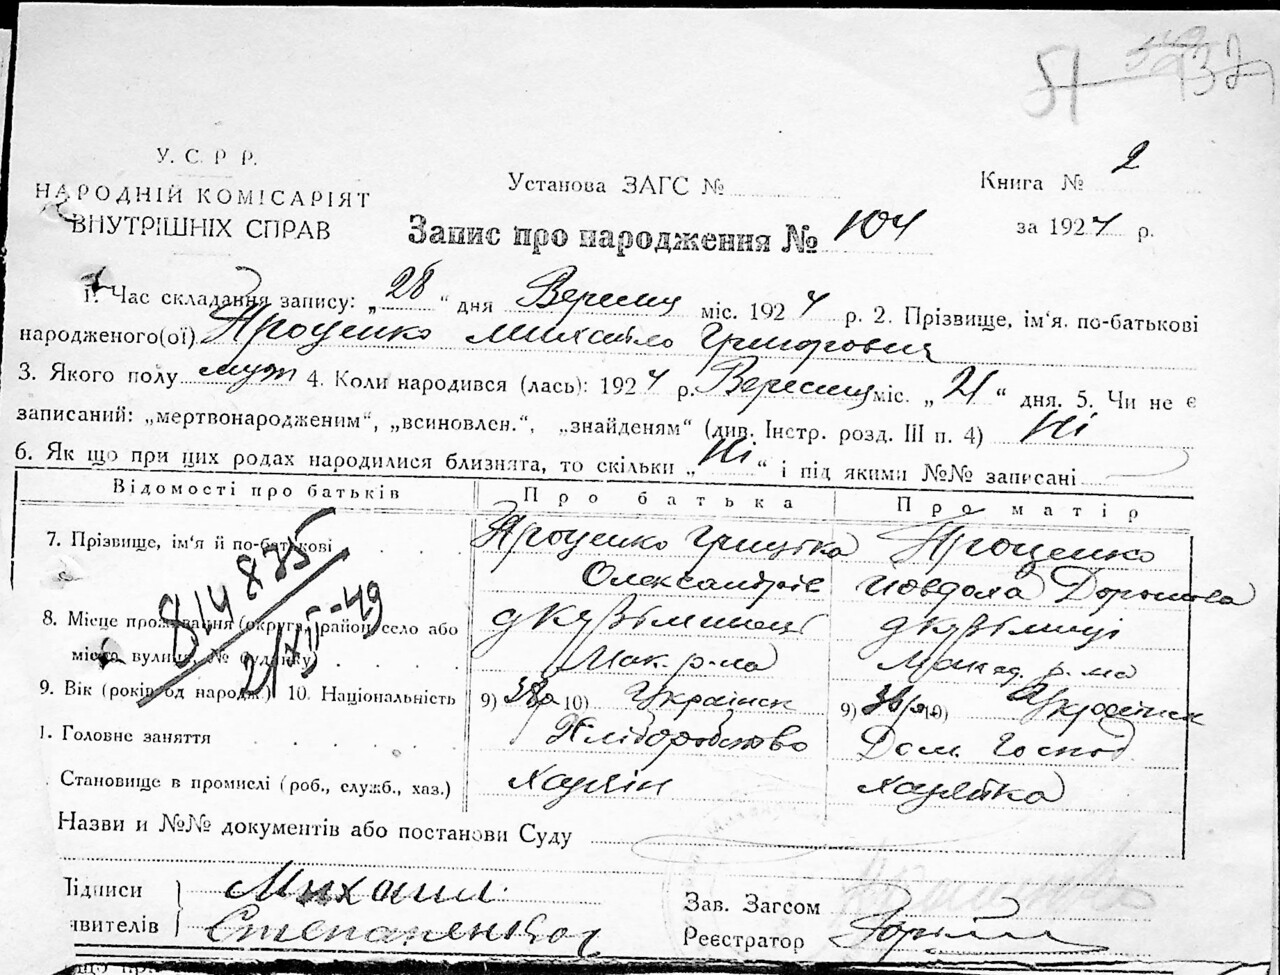 51
У. С. Р Р.
НАРОДНІЙ КОМІСАРІЯТ
ВНУТРІШНІХ СПРАВ
Установа ЗАГС №
Книга № 2
Запис про народження № 104
за 1924 р.
1. Час складання запису: „28“ дня Вересня міс. 1924 р. 2. Прізвище, ім'я. по-батькові
народженого(ої) Проценко Михайло Григорович
3. Якого полу муж 4. Коли народився (лась): 1924 р. Вересня міс. „21“ дня. 5. Чи не є
записаний: „мертвонародженим“, „всиновлен.“, „знайденям“ (див. Інстр. розд. III п. 4) Ні
6. Як що при цих родах народилися близнята, то скільки „Ні“ і під якими №№ записані
Відомості про батьків Про батька Про матір
7. Прізвище, ім'я й по-батькові Проценко Грицька Проценко
Олександрів Явдоха
8. Місце проживання (округа, район, село або
місто вулиця, № будинку)
814875
9. Вік (років од народж.) 10. Національність 9) 38р 10) Українск 9) 10) Українск
1. Головне заняття Хліборобство Дом. Господ
Становище в промислі (роб., служб., хаз.) Хазяїн Хазяйка
Назви и №№ документів або постанови Суду
Підписи Михаил
явителів
Зав. Загсом
Реєстратор